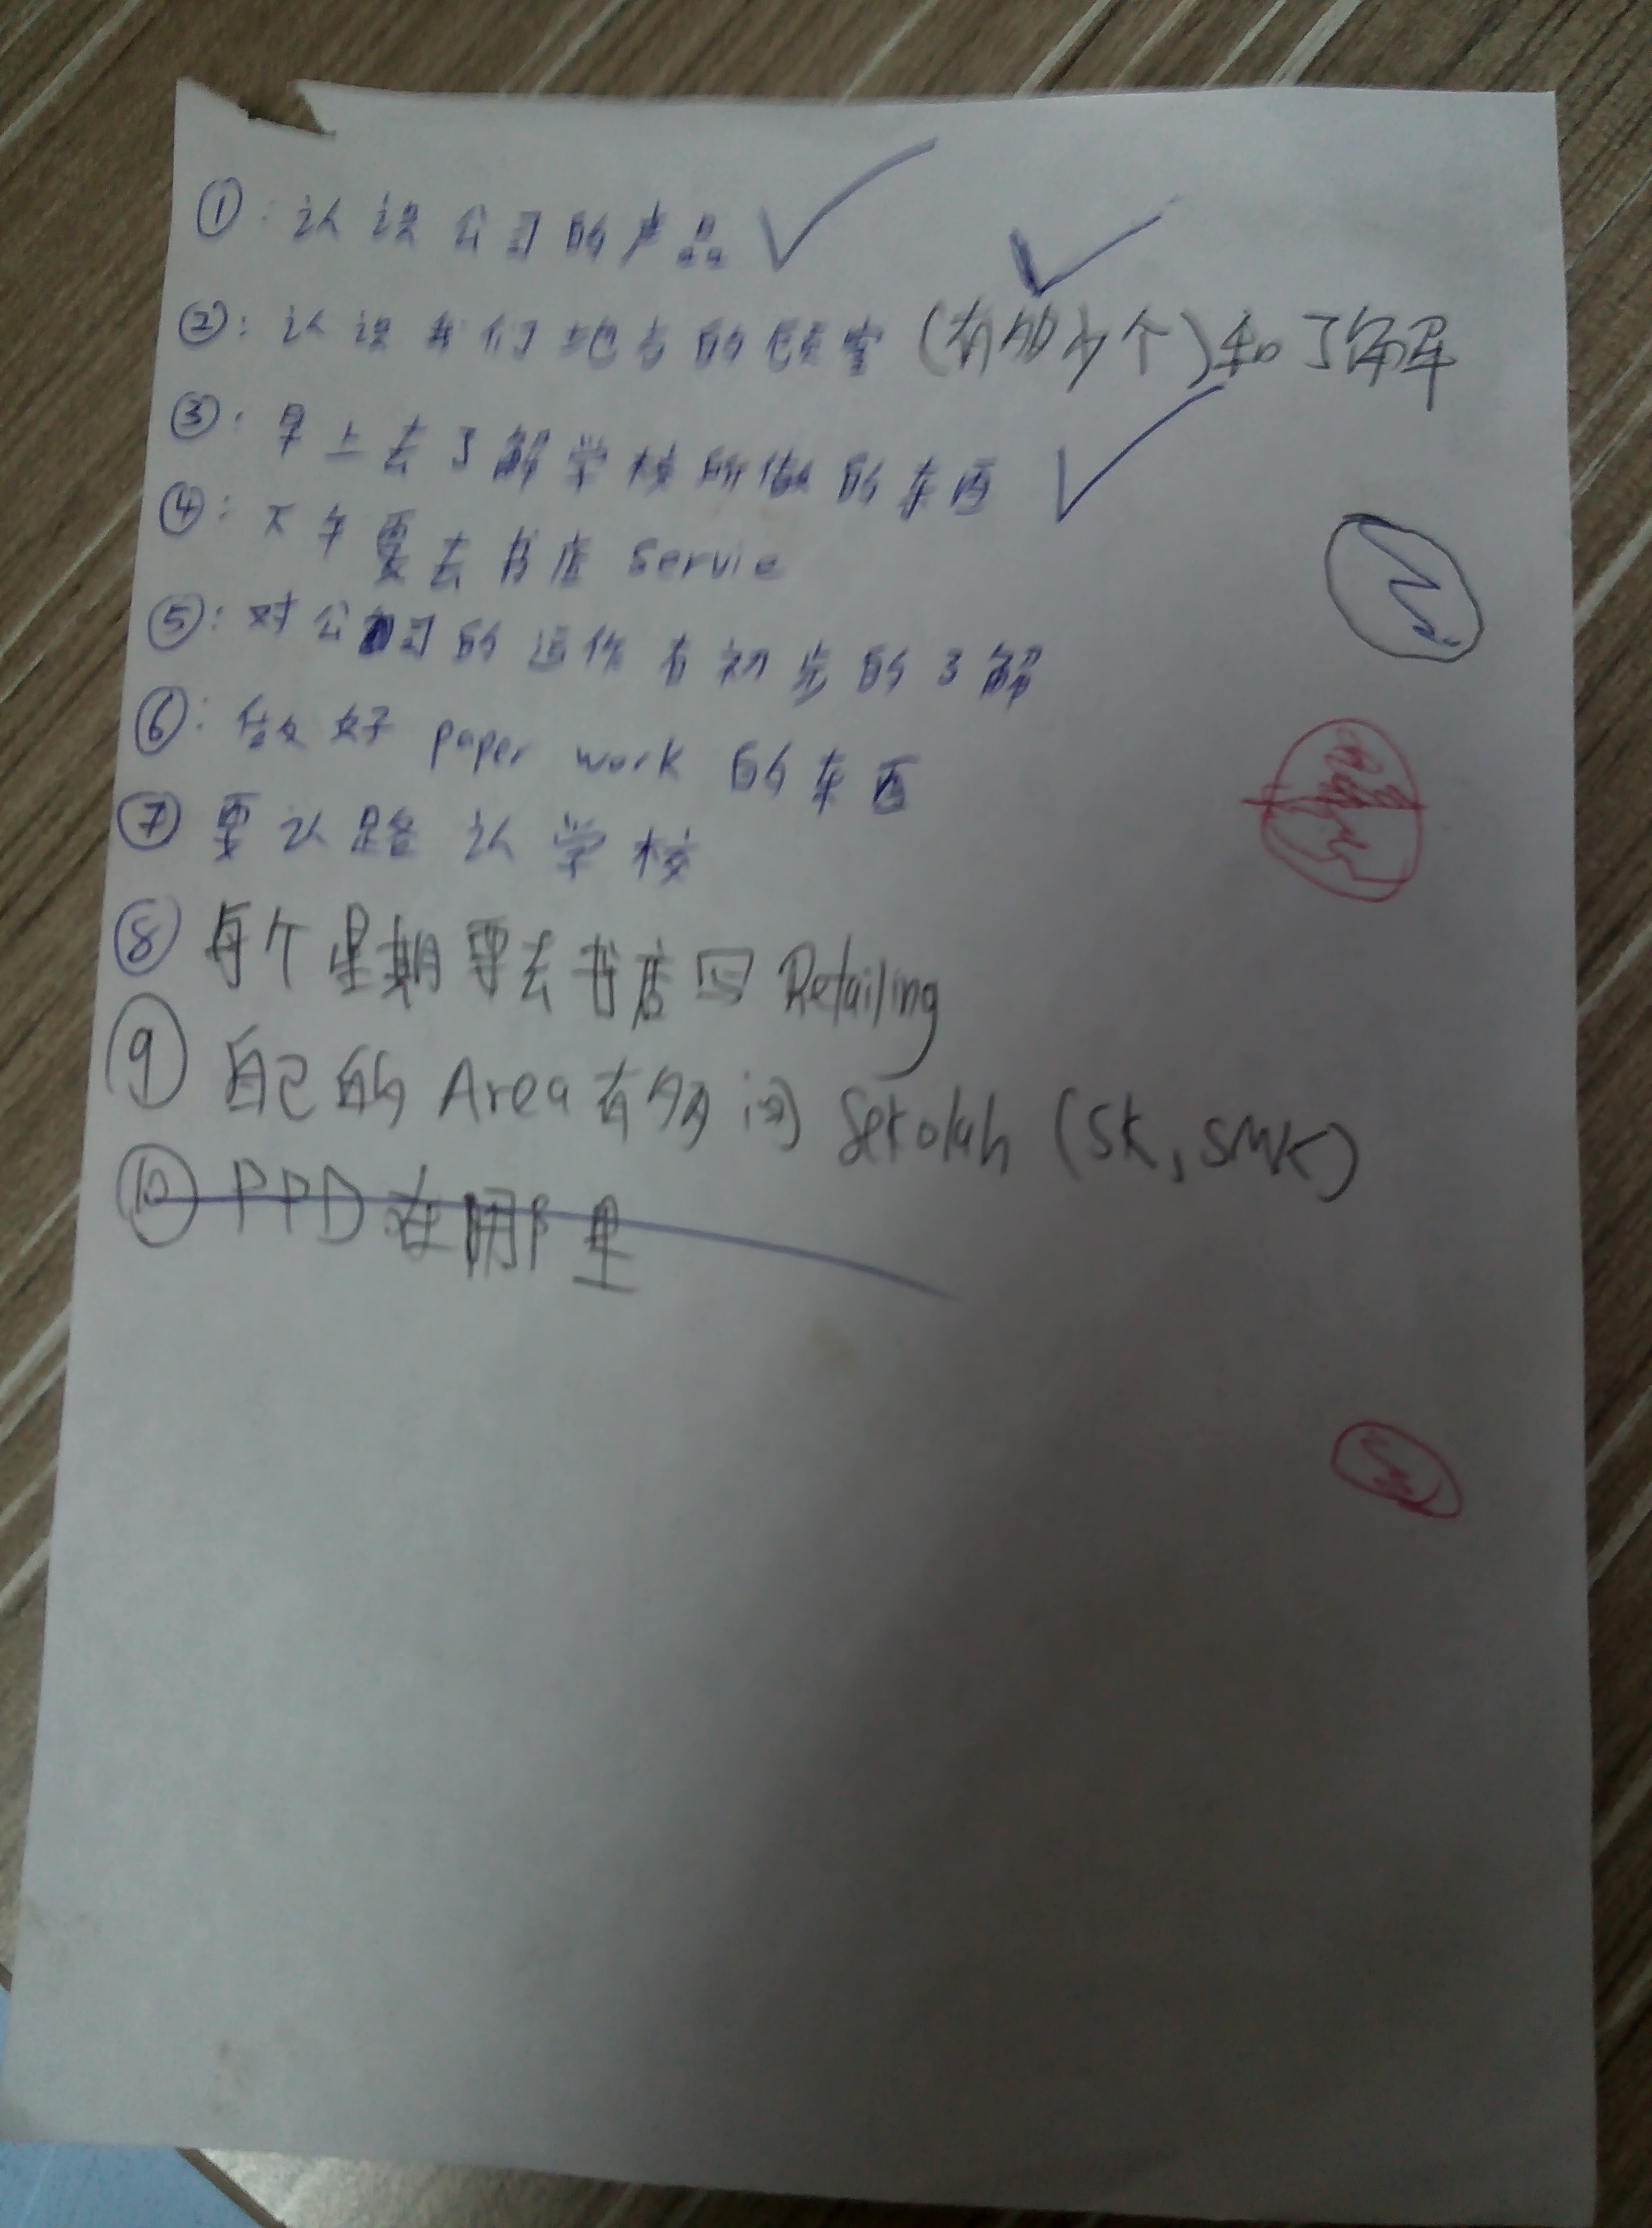 ①：认识公司的产品
②：认识我们地方的顾客(有多少个)和了解
③：早上去了解学校所做的东西
④：下午要去书店 Servie
⑤：对公司的运作有初步的了解
⑥：做好 paper work 的东西
⑦ 要认路认学校
⑧ 每个星期要去书店写 Retailing
⑨ 自己的 Area 有多间 Sekolah (SK, SMK)
⑩ PPD 在哪里